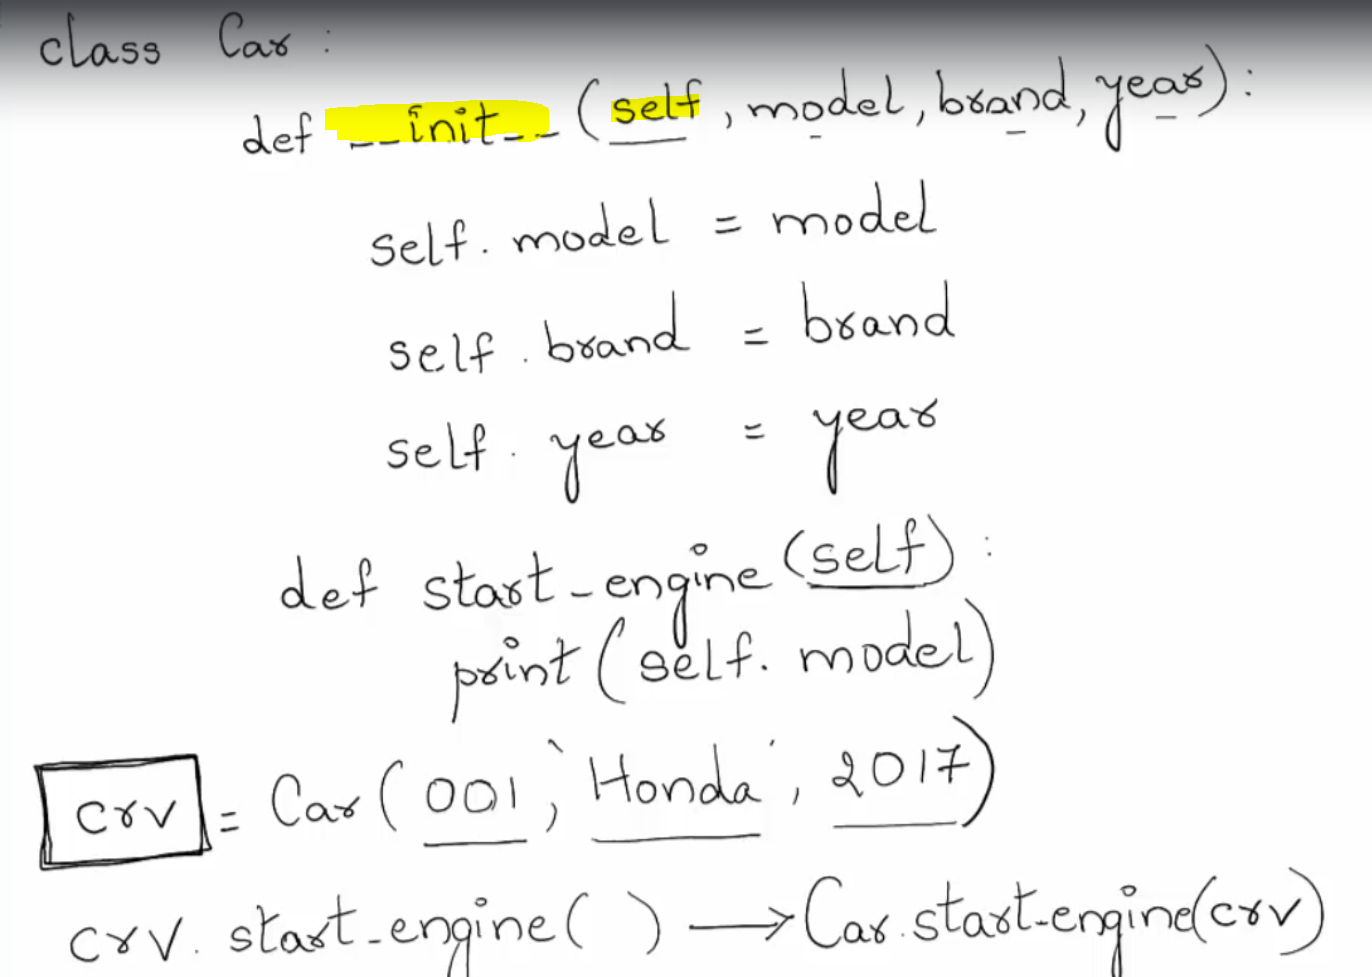 class Car :
def __init__ (self, model, brand, year) :
self. model = model
self . brand = brand
self . year = year
def start_engine (self) :
print (self. model)
crv = Car ( 001, 'Honda', 2017)
crv. start_engine ( ) → Car.start_engine(crv)